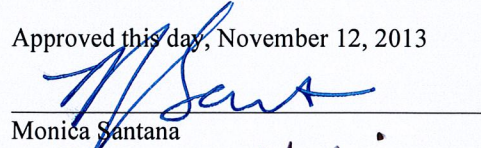 Approved this day, November 12, 2013
M Sant
Monica Santana